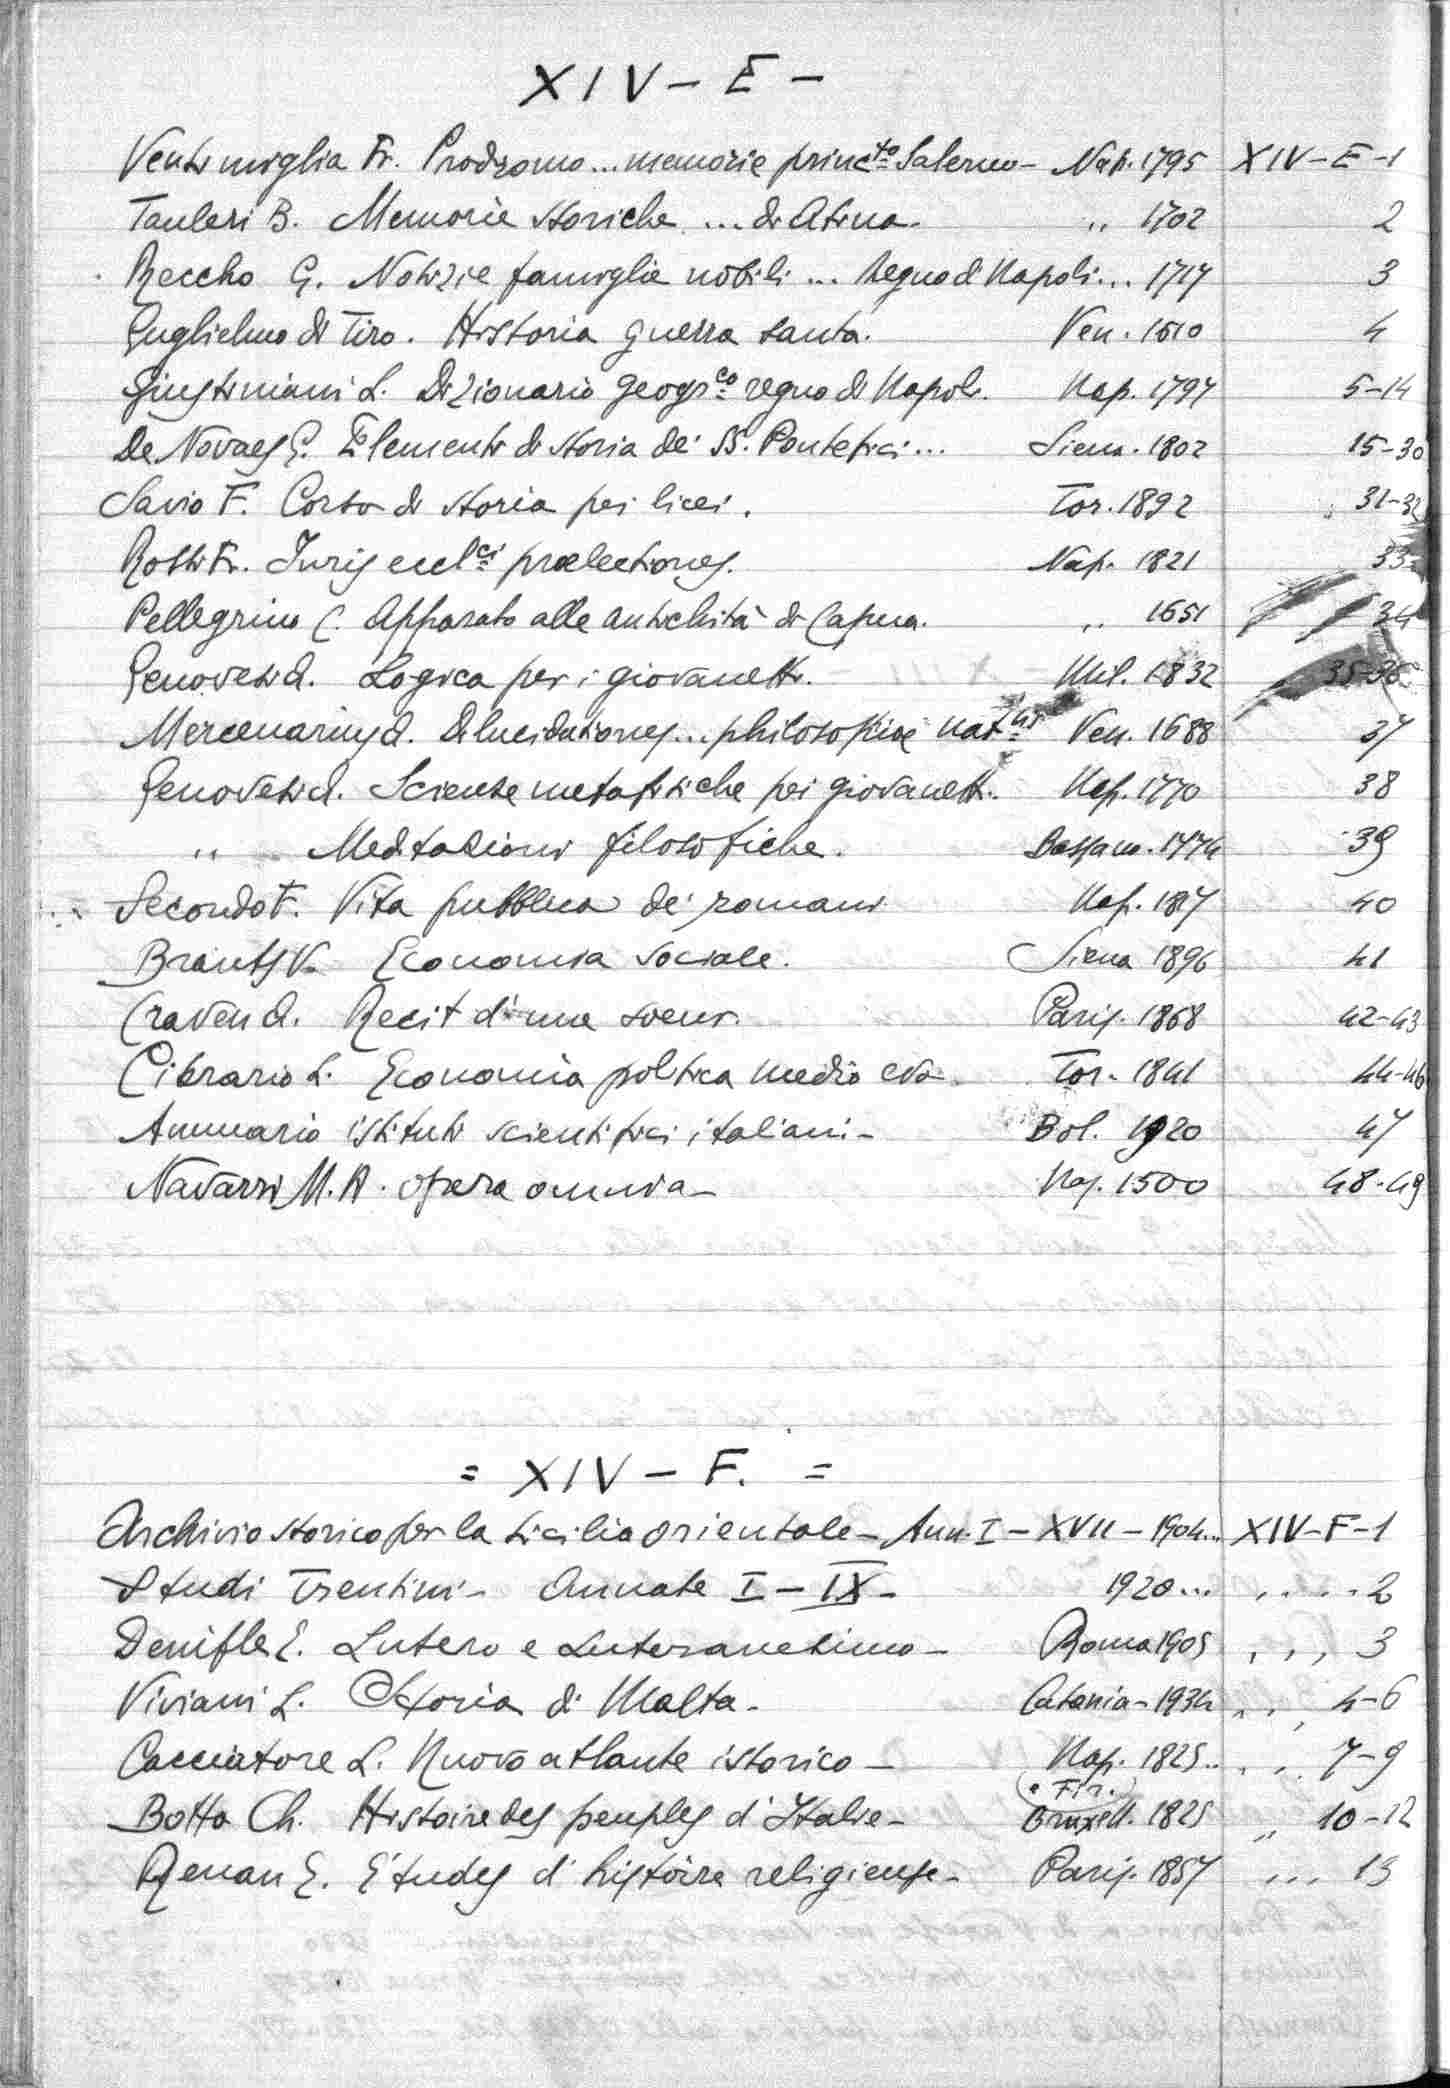 XIV - E -
Ventimiglia Fr. Prodromo... memorie princto Salerno - Nap. 1795 XIV-E-1
Tauleri B. Memorie storiche ... di Atina. " 1702 2
Reccho G. Notizie famiglie nobili ... regno di Napoli... 1717 3
Guglielmo di Tiro. Historia guerra santa. Ven. 1610 4
Giustiniani L. Dizionario geogrco regno di Napoli. Nap. 1797 5-14
De Novaes G. Elementi di storia de' SS. Pontefici... Siena. 1802 15-30
Savio F. Corso di storia pei licei. Tor. 1892 31-32
Rossi Fr. Juris ecclci prælectiones. Nap. 1821 33
Pellegrino C. Apparato alle antichità di Capua. " 1651 34
Genovesi A. Logica per i giovanetti. Mil. 1832 35-36
Mercenarius A. Dilucidationes... philosophiæ natlis Ven. 1688 37
Genovesi A. Scienze metafisiche pei giovanetti. Nap. 1770 38
" Meditazioni filosofiche. Bassano. 1774 39
Secondo F. Vita pubblica de' romani Nap. 1817 40
Brants V. Economia sociale. Siena 1896 41
Craven A. Recit d'une soeur. Paris. 1868 42-43
Cibrario L. Economia politica medio evo Tor. 1841 44-46
Annuario istituti scientifici italiani - Bol. 1920 47
Navarri M. A. opera omnia - Nap. 1500 48-49
= XIV - F. =
Archivio storico per la Sicilia orientale - Ann. I - XVII - 1904... XIV-F-1
Studi Trentini - Annate I - IX - 1920... .... 2
Denifle E. Lutero e Luteranesimo - Roma 1905 ,,, 3
Viviani L. Storia di Malta - Catania - 1934 ,,, 4-6
Cacciatore L. Nuovo atlante istorico - Nap. 1825.. ,,, 7-9
(e Fir.)
Botta Ch. Histoire des peuples d'Italie - Bruxell. 1825 ,, 10-12
Renan E. Études d'histoire religieuse - Paris. 1857 ... 13